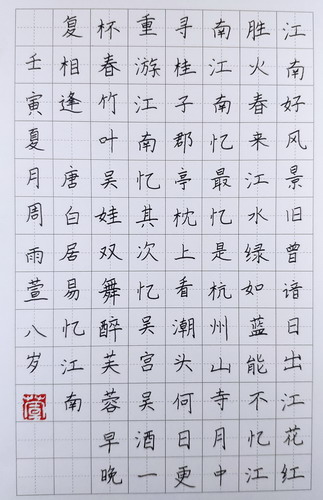 江南好风景旧曾谙日出江花红
胜火春来江水绿如蓝能不忆江
南江南忆最忆是杭州山寺月中
寻桂子郡亭枕上看潮头何日更
重游江南忆其次忆吴宫吴酒一
杯春竹叶吴娃双舞醉芙蓉早晚
复相逢 唐白居易忆江南
壬寅夏月周雨萱八岁